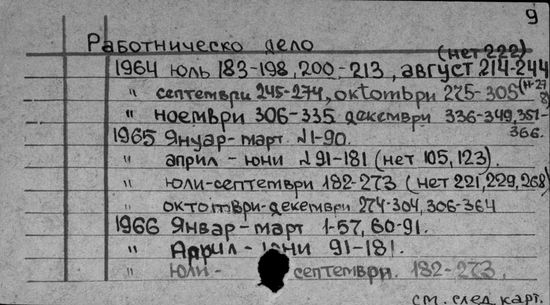 9
Работническо дело
(нет 222)
1964 юль 183-198, 200-213, август 214-244
" септември 245-274, октомври 275-305 (н-278)
" ноември 306-335 декември 336-349, 351-366.
1965 Януар-март 1-90.
" април-юни 91-181 (нет 105, 123).
" юли-септември 182-273 (нет 221, 229, 268)
октомври-декември 274-304, 306-364
1966 Январ-март 1-57, 60-91.
" Април-юни 91-181.
" юли- септември. 182-273.
см. след карт.